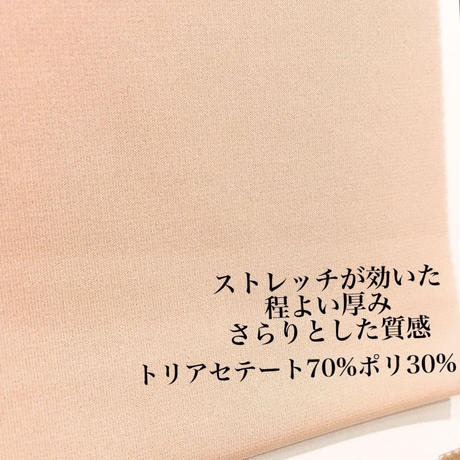 ストレッチが効いた
程よい厚み
さらりとした質感
トリアセテート70%ポリ30%